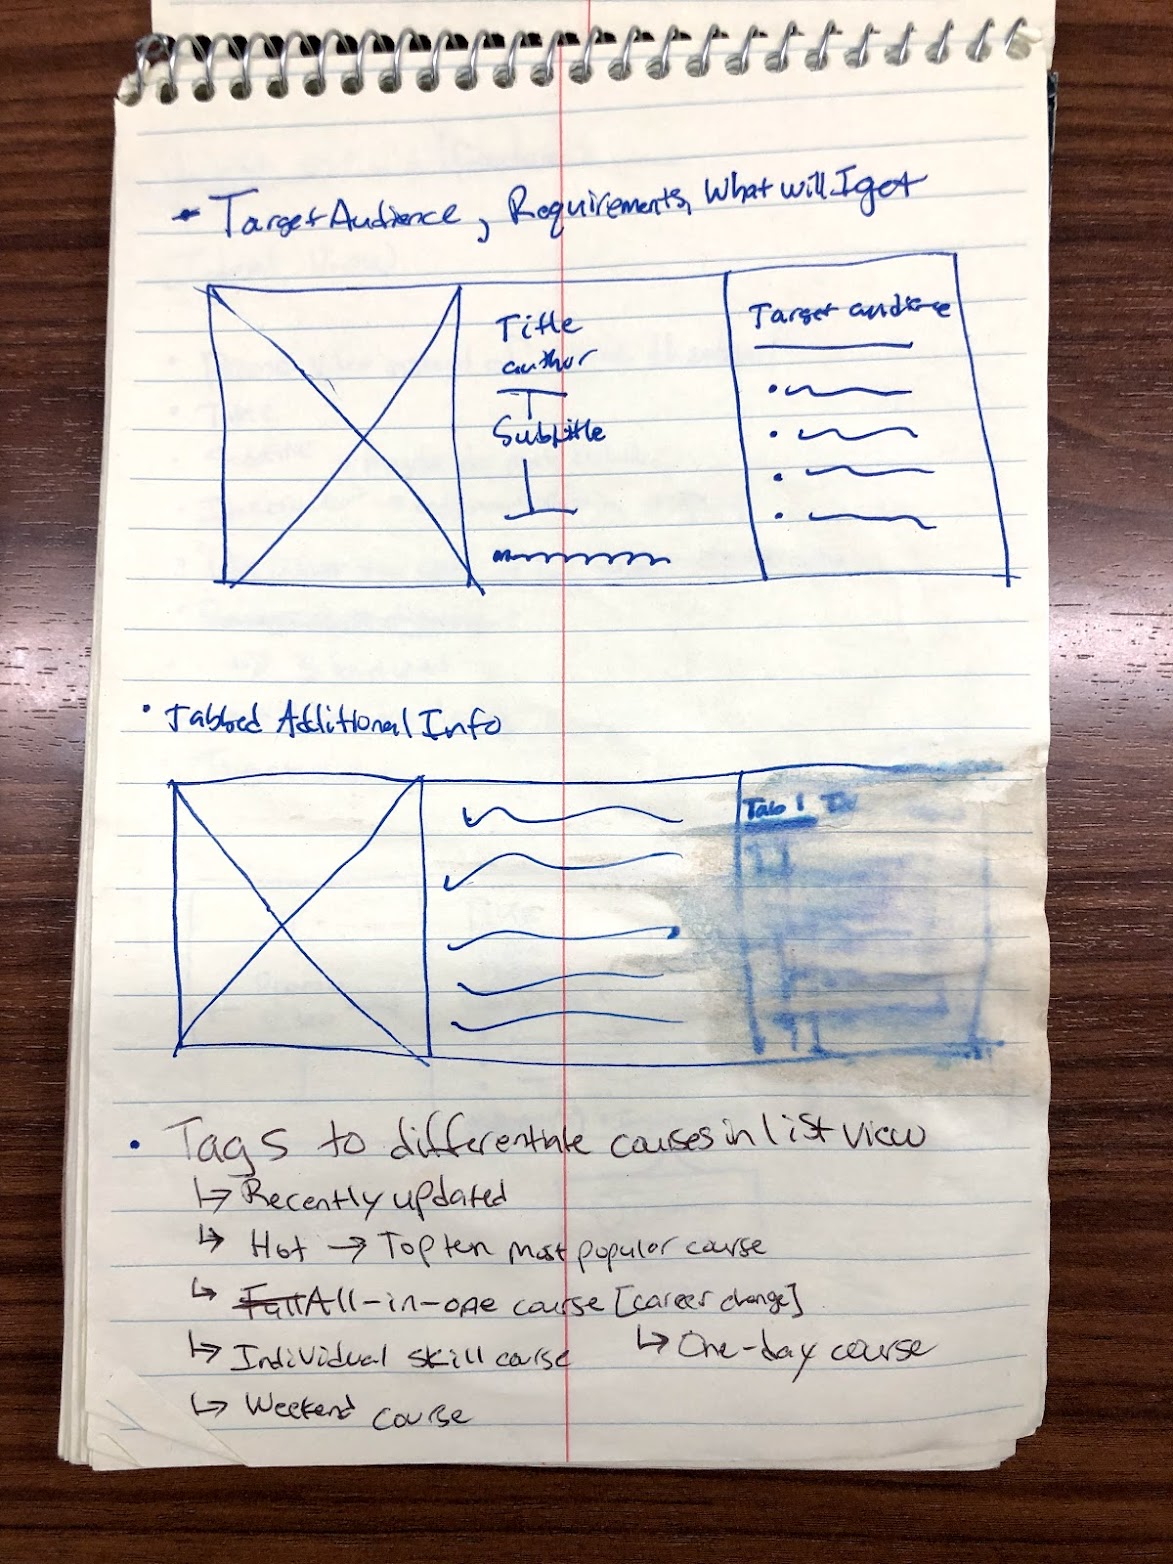 Target Audience, Requirements, What will I get
Title
author
Subtitle
Target audience
Tabbed Additional Info
Tab 1
Tags to differentiate courses in list view
↳ Recently updated
↳ Hot → Top ten most popular course
↳ All-in-one course [career change]
↳ Individual skill course ↳ One-day course
↳ Weekend course